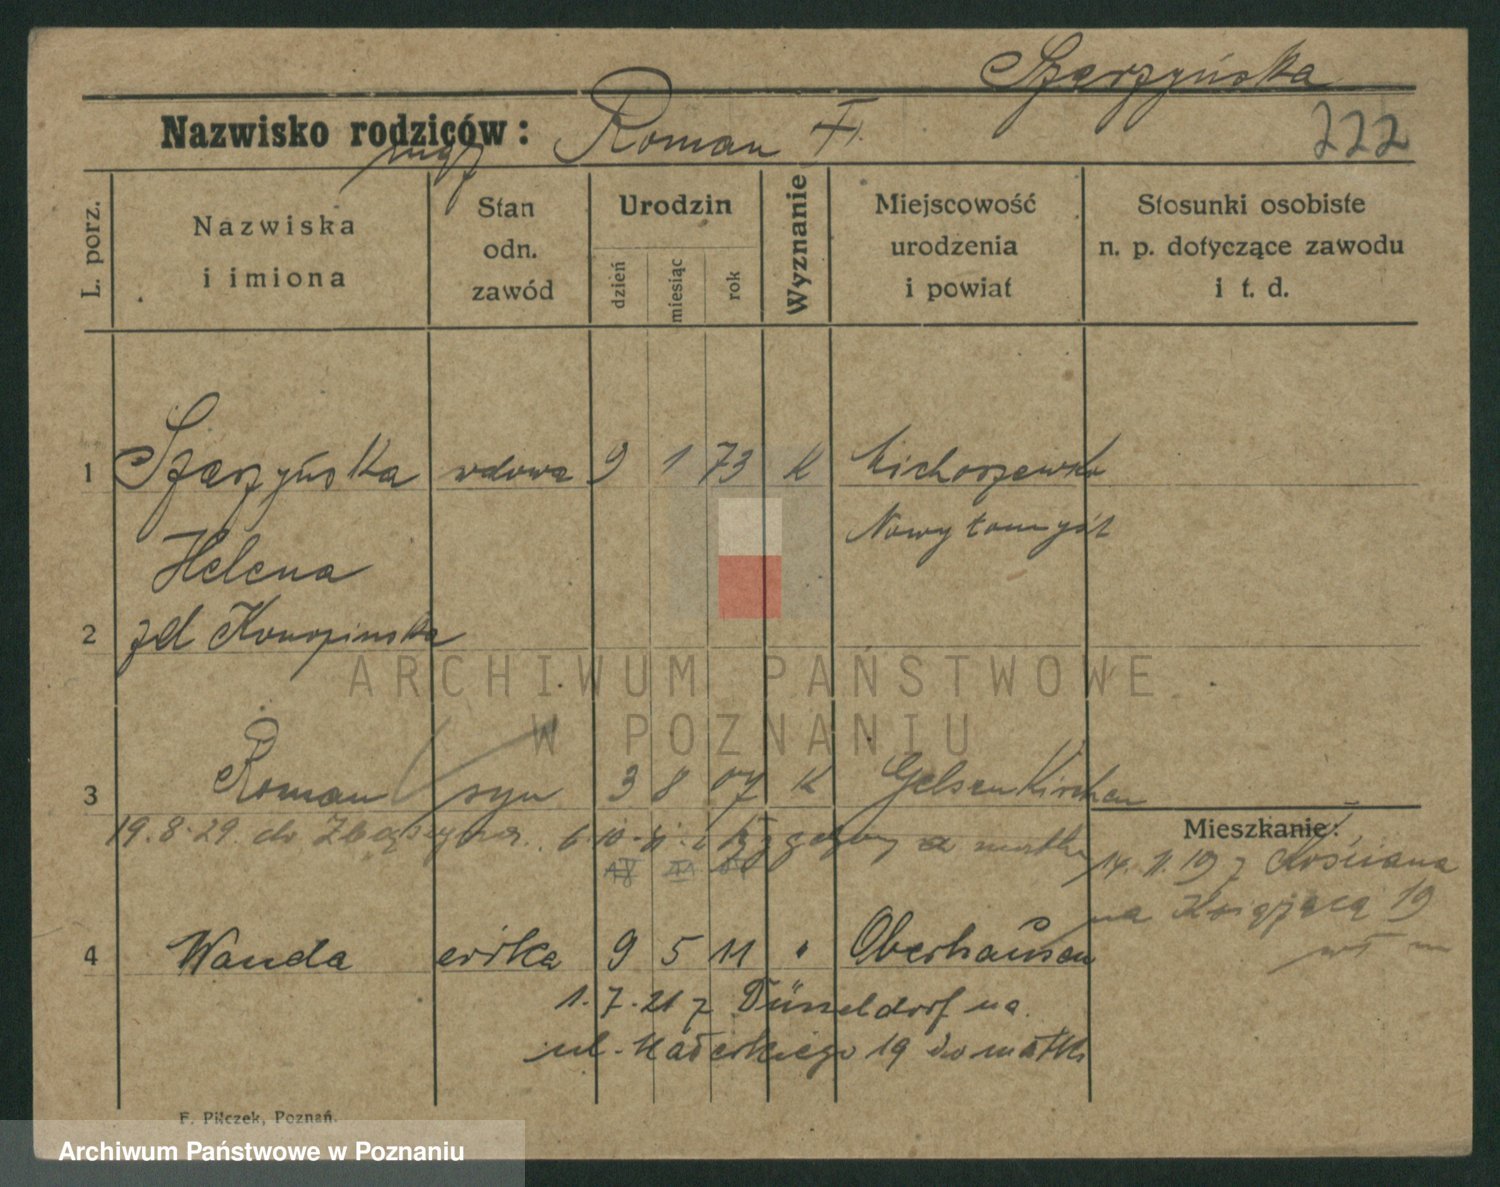 Szarzyńska
Nazwisko rodziców: Roman
mąż
222
L. porz.
Nazwiska i imiona
Stan odn. zawód
Urodzin
dzień
miesiąc
rok
Wyznanie
Miejscowość urodzenia i powiat
Stosunki osobiste n. p. dotyczące zawodu i t. d.
1 Szarzyńska wdowa 9 1 73 K
Nowy tomyśl
Helena
2 zd
3 Roman syn 3 8 07 K Gelsenkirchen
19.8.29. do Zbąszynia
Mieszkanie:
14. 11. 19 z Kościana
na Książęcą 19
4 Wanda córka 9 5 11 " Oberhausen
1. 7. 21 z Düsseldorf na
ul. Małeckiego 19 do matki
F. Pilczek, Poznań.
ARCHIWUM PAŃSTWOWE
W POZNANIU
Archiwum Państwowe w Poznaniu